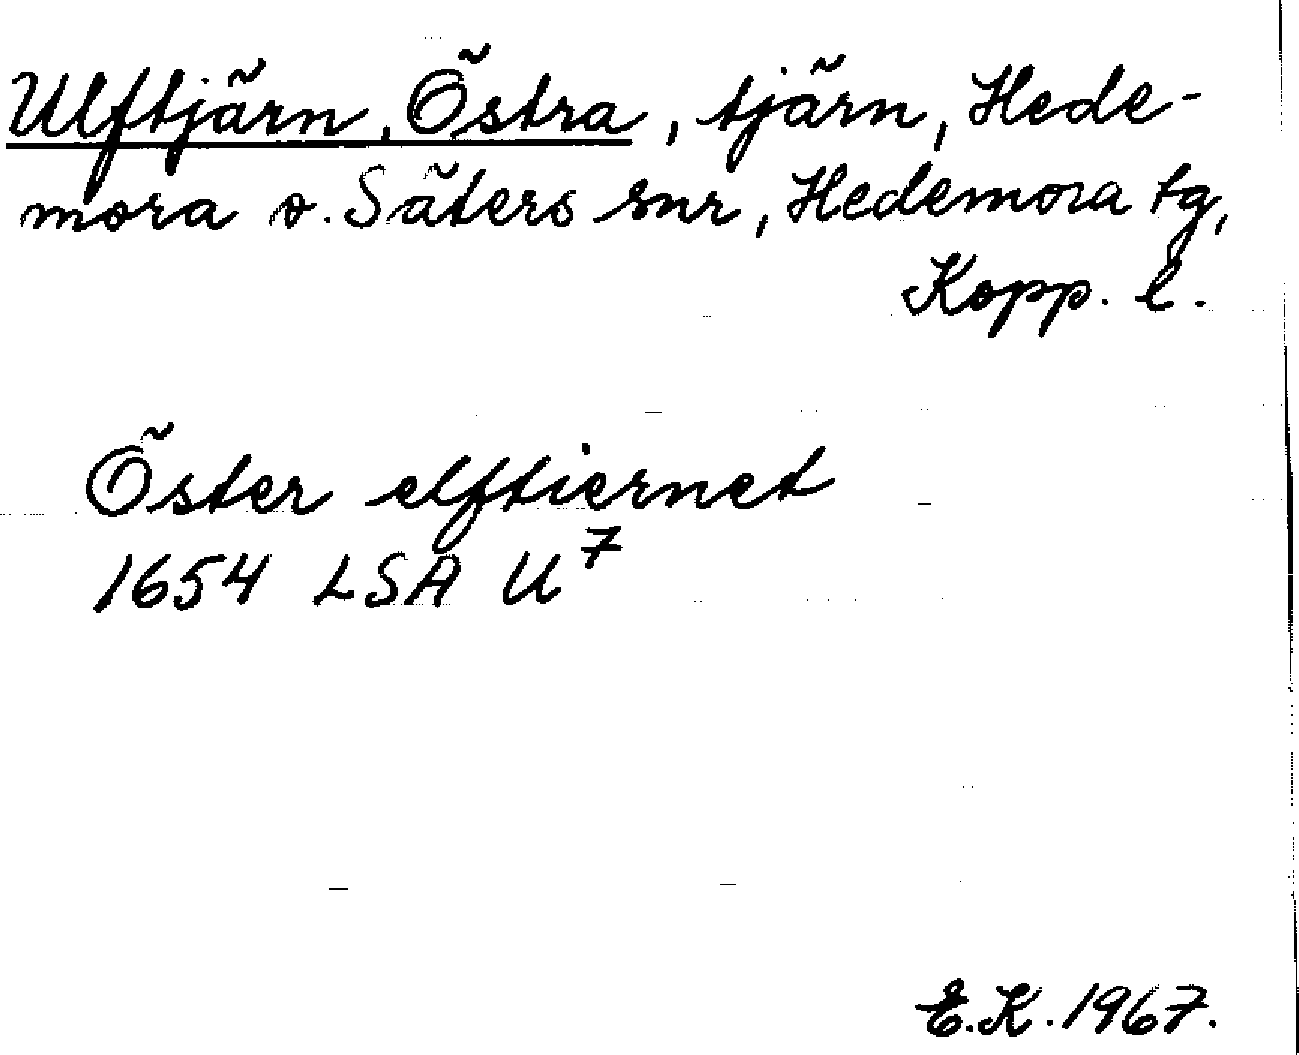 Ulftjärn, Östra, tjärn, Hede-
mora o. Säters snr, Hedemora tg,
Kopp. l.
Öster elftiernet
1654 LSA U⁷
E.K. 1967.